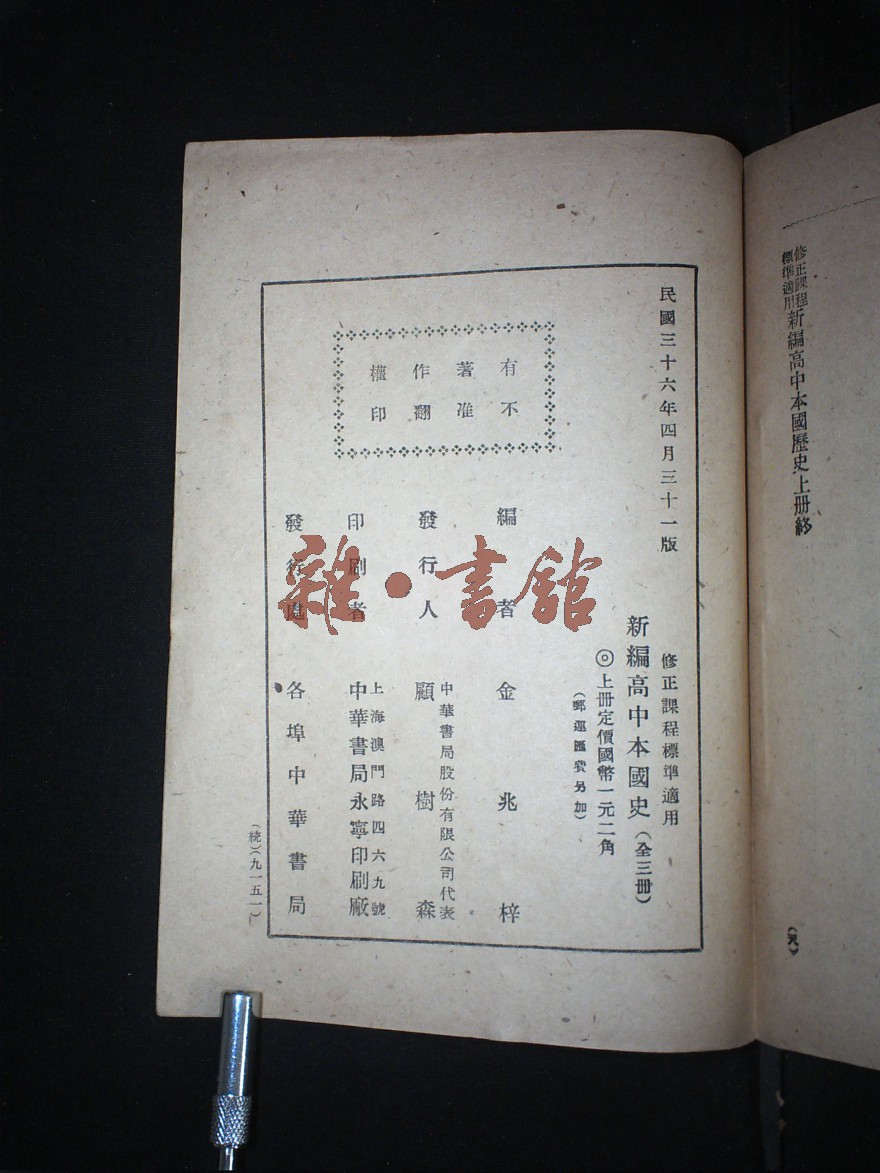 修正課程
標準適用新編高中本國歷史上册終
民國三十六年四月三十一版
修正課程標準適用
新編高中本國史(全三册)
◎上册定價國幣一元二角
(郵運匯費另加)
有著作權
不准翻印
編者 金兆梓
中華書局股份有限公司代表
發行人 顧樹森
上海澳門路四六九號
印刷者 中華書局永寧印刷廠
發行處 各埠中華書局
(統)(九一五一)
雜·書館